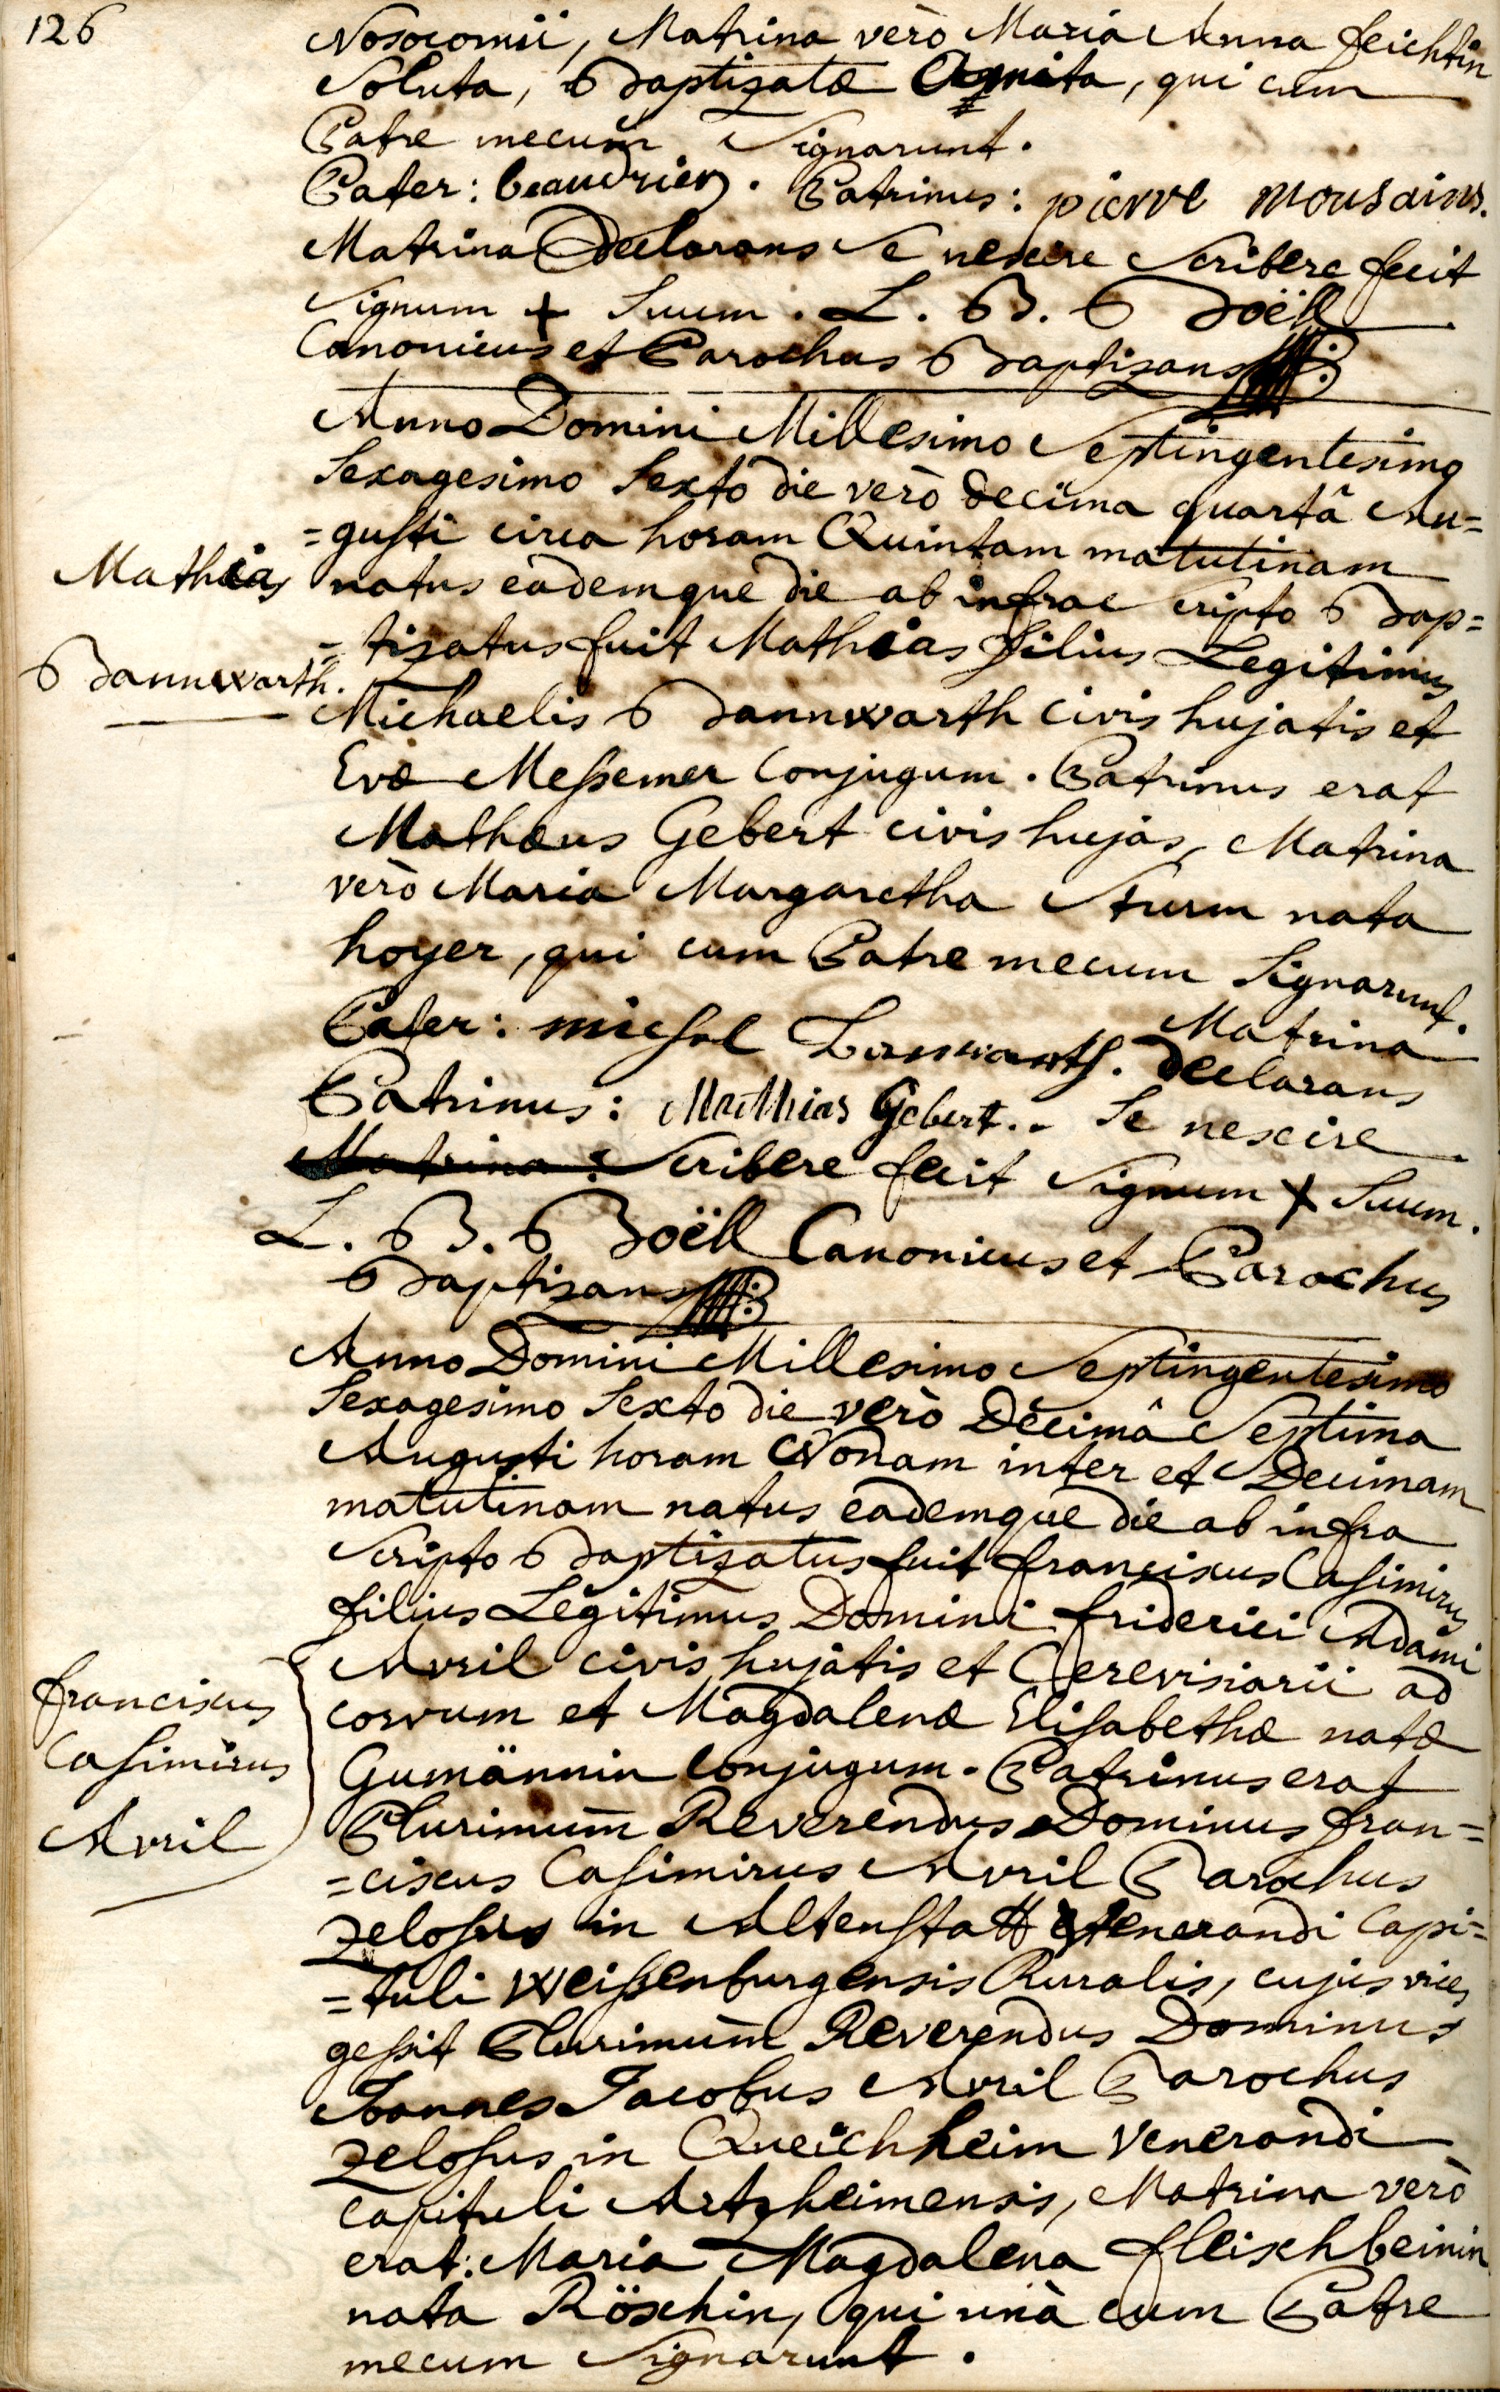 126
Nosocomii, Matrina verò Maria Anna feichtin
Soluta, Baptizatæ Agnita, qui cum
Patre mecum Signarunt.
Pater: beaudrien. Patrinus: pierre mousains.
Matrina Declarans Se nescire Scribere fecit
Signum + Suum. L. B. Boëll
Canonicus et Parochus Baptizans
Anno Domini Millesimo Septingentesimo
Sexagesimo Sexto die verò decima quartâ Au=
=gusti circa horam Quintam matutinam
Mathias
natus eademque die ab infrae scripto Bap=
=tizatus fuit Mathias filius Legitimus
Bannwarth.
Michaelis Bannwarth civis hujatis et
Evæ Meßemer Conjugum. Patrinus erat
Mathæus Gebert civis hujas, Matrina
verò Maria Margaretha Sturm nata
hoyer, qui cum Patre mecum Signarunt.
Pater: michel Banwarth. Matrina
declarans
Patrinus: Matthias Gebert.. Se nescire
Matrina: Scribere fecit Signum + Suum.
L. B. Boëll Canonicus et Parochus
Baptizans
Anno Domini Millesimo Septingentesimo
Sexagesimo Sexto die verò Decimâ Septima
Augusti horam Nonam inter et Decimam
matutinam natus eademque die ab infra
Scripto Baptizatus fuit franciscus Casimirus
filius Legitimus Domini friderici Adami
Avril civis hujatis et Cerevisiarii ad
franciscus
Casimirus
Avril
corvum et Magdalenæ Elisabethæ natæ
Gumännin Conjugum. Patrinus erat
Plurimum Reverendus Dominus fran=
=ciscus Casimirus Avril Parochus
zelosus in Altenstatt Venerandi Capi=
=tuli Weißenburgensis Ruralis, cujus vices
geßit Plurimum Reverendus Dominus
Joannes Jacobus Avril Parochus
zelosus in Queichheim Venerandi
Capituli Artzheimensis, Matrina verò
erat: Maria Magdalena fleischbeinin
nata Röschin, qui unà cum Patre
mecum Signarunt.